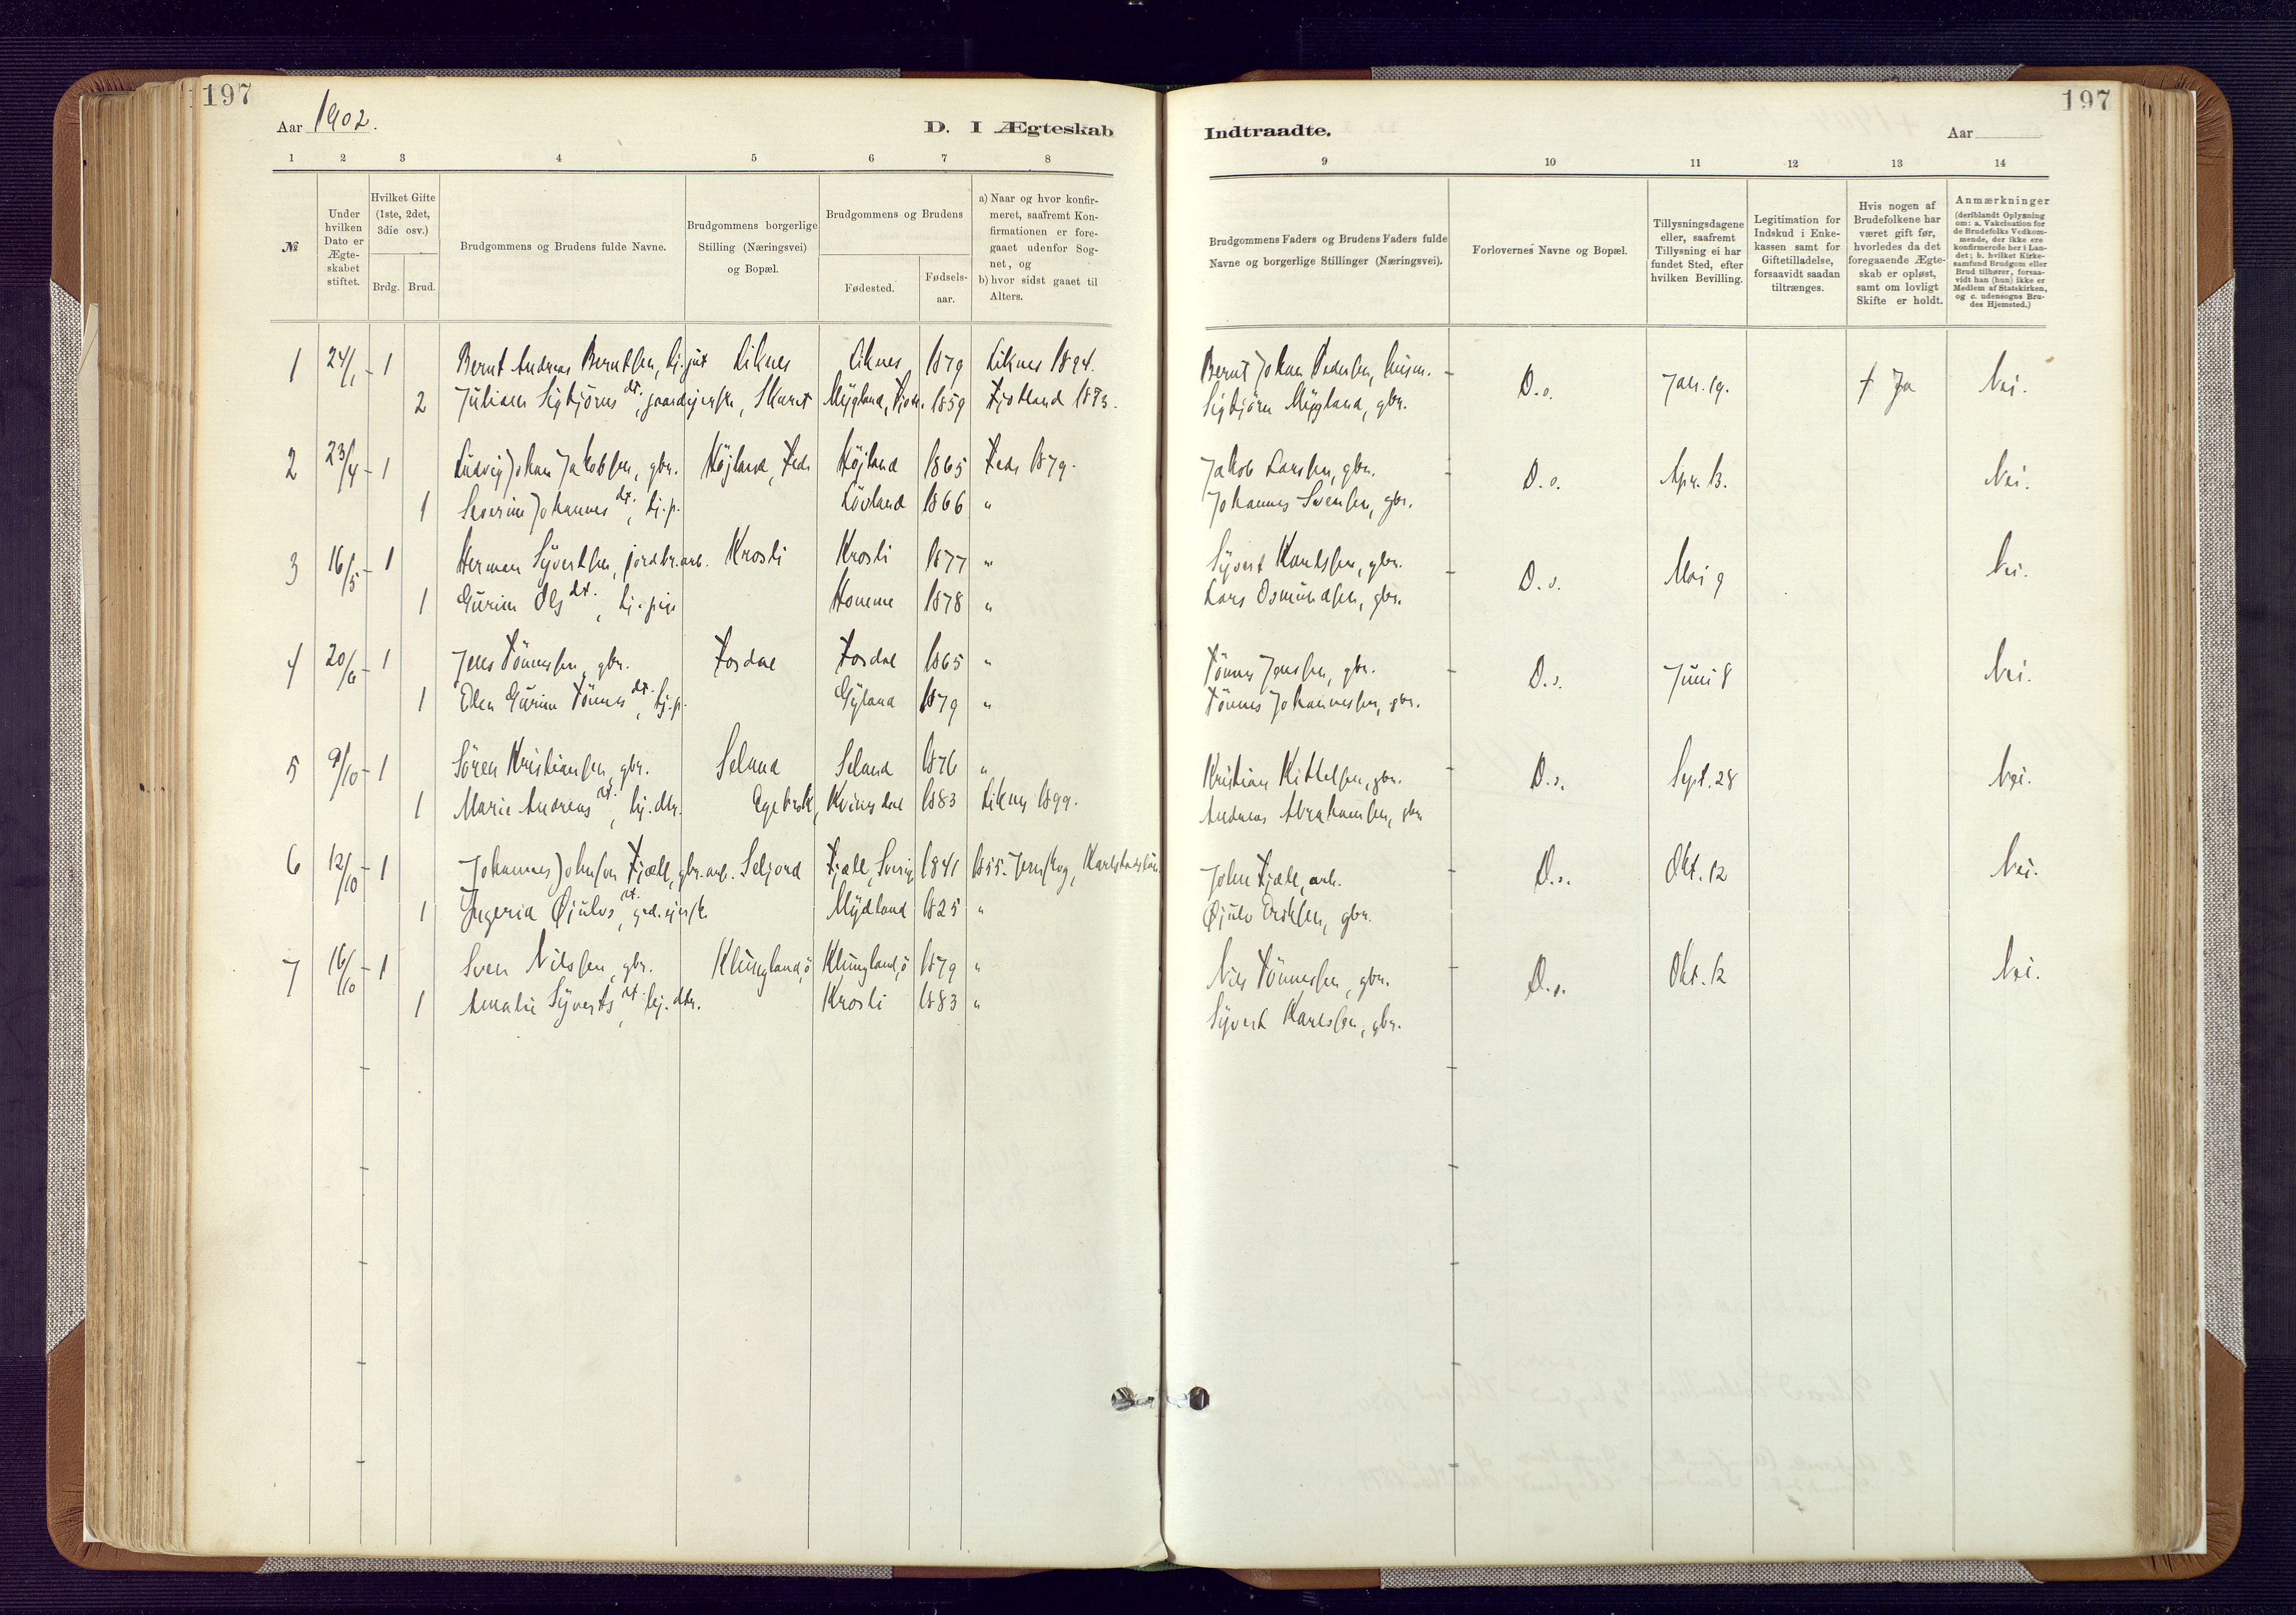 197
Aar 1902.
D. I Ægteskab
1 2 3 4 5 6 7 8
№
Under hvilken Dato er Ægteskabet stiftet.
Hvilket Gifte (1ste, 2det, 3die osv.)
Brdg. Brud.
Brudgommens og Brudens fulde Navne.
Brudgommens borgerlige Stilling (Næringsvei) og Bopæl.
Brudgommens og Brudens
Fødested.
Fødselsaar.
a) Naar og hvor konfirmeret, saafremt Konfirmationen er foregaaet udenfor Sognet, og
b) hvor sidst gaaet til Alters.
1 24/1 - 1 Bernt Andreas Berntsen, tj.gut Liknes Liknes 1879 Liknes 1894.
2 Juliane Sigbjörns dt., gaardejerske, Skaret Mygland, 1859 Fjotland 1873.
2 23/4 - 1 Ludvig Johan Jakobsen, gbr. Höjland, Feda Höjland 1865 Feda 1879.
1 Severine Johannes dt., tj.p. Lövland 1866 "
3 16/5 - 1 Herman Syvertsen, jordbr.arb. Krosli Krosli 1877 "
1 Gurine Ols dt., tj.pige Homme 1878 "
4 20/6 - 1 Jens Tönnessen, gbr. Fosdal Fosdal 1865 "
1 Elen Gurine Tönnes dt., tj.p. Gyland 1879 "
5 9/10 - 1 Sören Kristiansen, gbr. Seland Seland 1876 "
1 Marie Andreas dt., hj.dtr. Egebrok, Kvinesdal 1883 Liknes 1899.
6 12/10 - 1 Johannes Johnson Fjæll, gbr.arb. Seljord Fjæll, Sverig 1841 1855. Jernskog, Karlstadslän
1 Ingeria Øjulvs dt., grd.ejersk. Mydland 1825 "
7 16/10 - 1 Sven Nilssen, gbr. Klungland, ö Klungland, ö 1879 "
1 Amalie Syverts dt., hj.dtr. Krosli 1883 "
197
Indtraadte.
Aar
9 10 11 12 13 14
Brudgommens Faders og Brudens Faders fulde Navne og borgerlige Stillinger (Næringsvei).
Forlovernes Navne og Bopæl.
Tillysningsdagene eller, saafremt Tillysning ei har fundet Sted, efter hvilken Bevilling.
Legitimation for Indskud i Enkekassen samt for Giftetilladelse, forsaavidt saadan tiltrænges.
Hvis nogen af Brudefolkene har været gift før, hvorledes da det foregaaende Ægteskab er opløst, samt om lovligt Skifte er holdt.
Anmærkninger (deriblandt Oplysning om: a. Vakcination for de Brudefolks Vedkommende, der ikke ere konfirmerede her i Landet; b. hvilket Kirkesamfund Brudgom eller Brud tilhører, forsaavidt han (hun) ikke er Medlem af Statskirken, og c. udensogns Brudes Hjemsted.)
Bernt Johan Pedersen, husm. D.o. Jan. 19. † Ja Nei.
Sigbjörn Mygland, gbr.
Jakob Larssen, gbr. D.o. Apr. 13. Nei.
Johannes Svensen, gbr.
Syvert Karlssen, gbr. D.o. Mai 9 Nei.
Lars Osmundsen, gbr.
Tönnes Jenssen, gbr. D.o. Juni 8 Nei.
Tönnes Johannessen, gbr.
Kristian Kittelsen, gbr. D.o. Sept. 28 Nei.
Andreas Abrahamsen, gbr.
John Fjæll, arb. D.o. Okt. 12 Nei.
Øjulv Eriksen, gbr.
Nils Tönnessen, gbr. D.o. Okt. 12 Nei.
Syvert Karlssen, gbr.